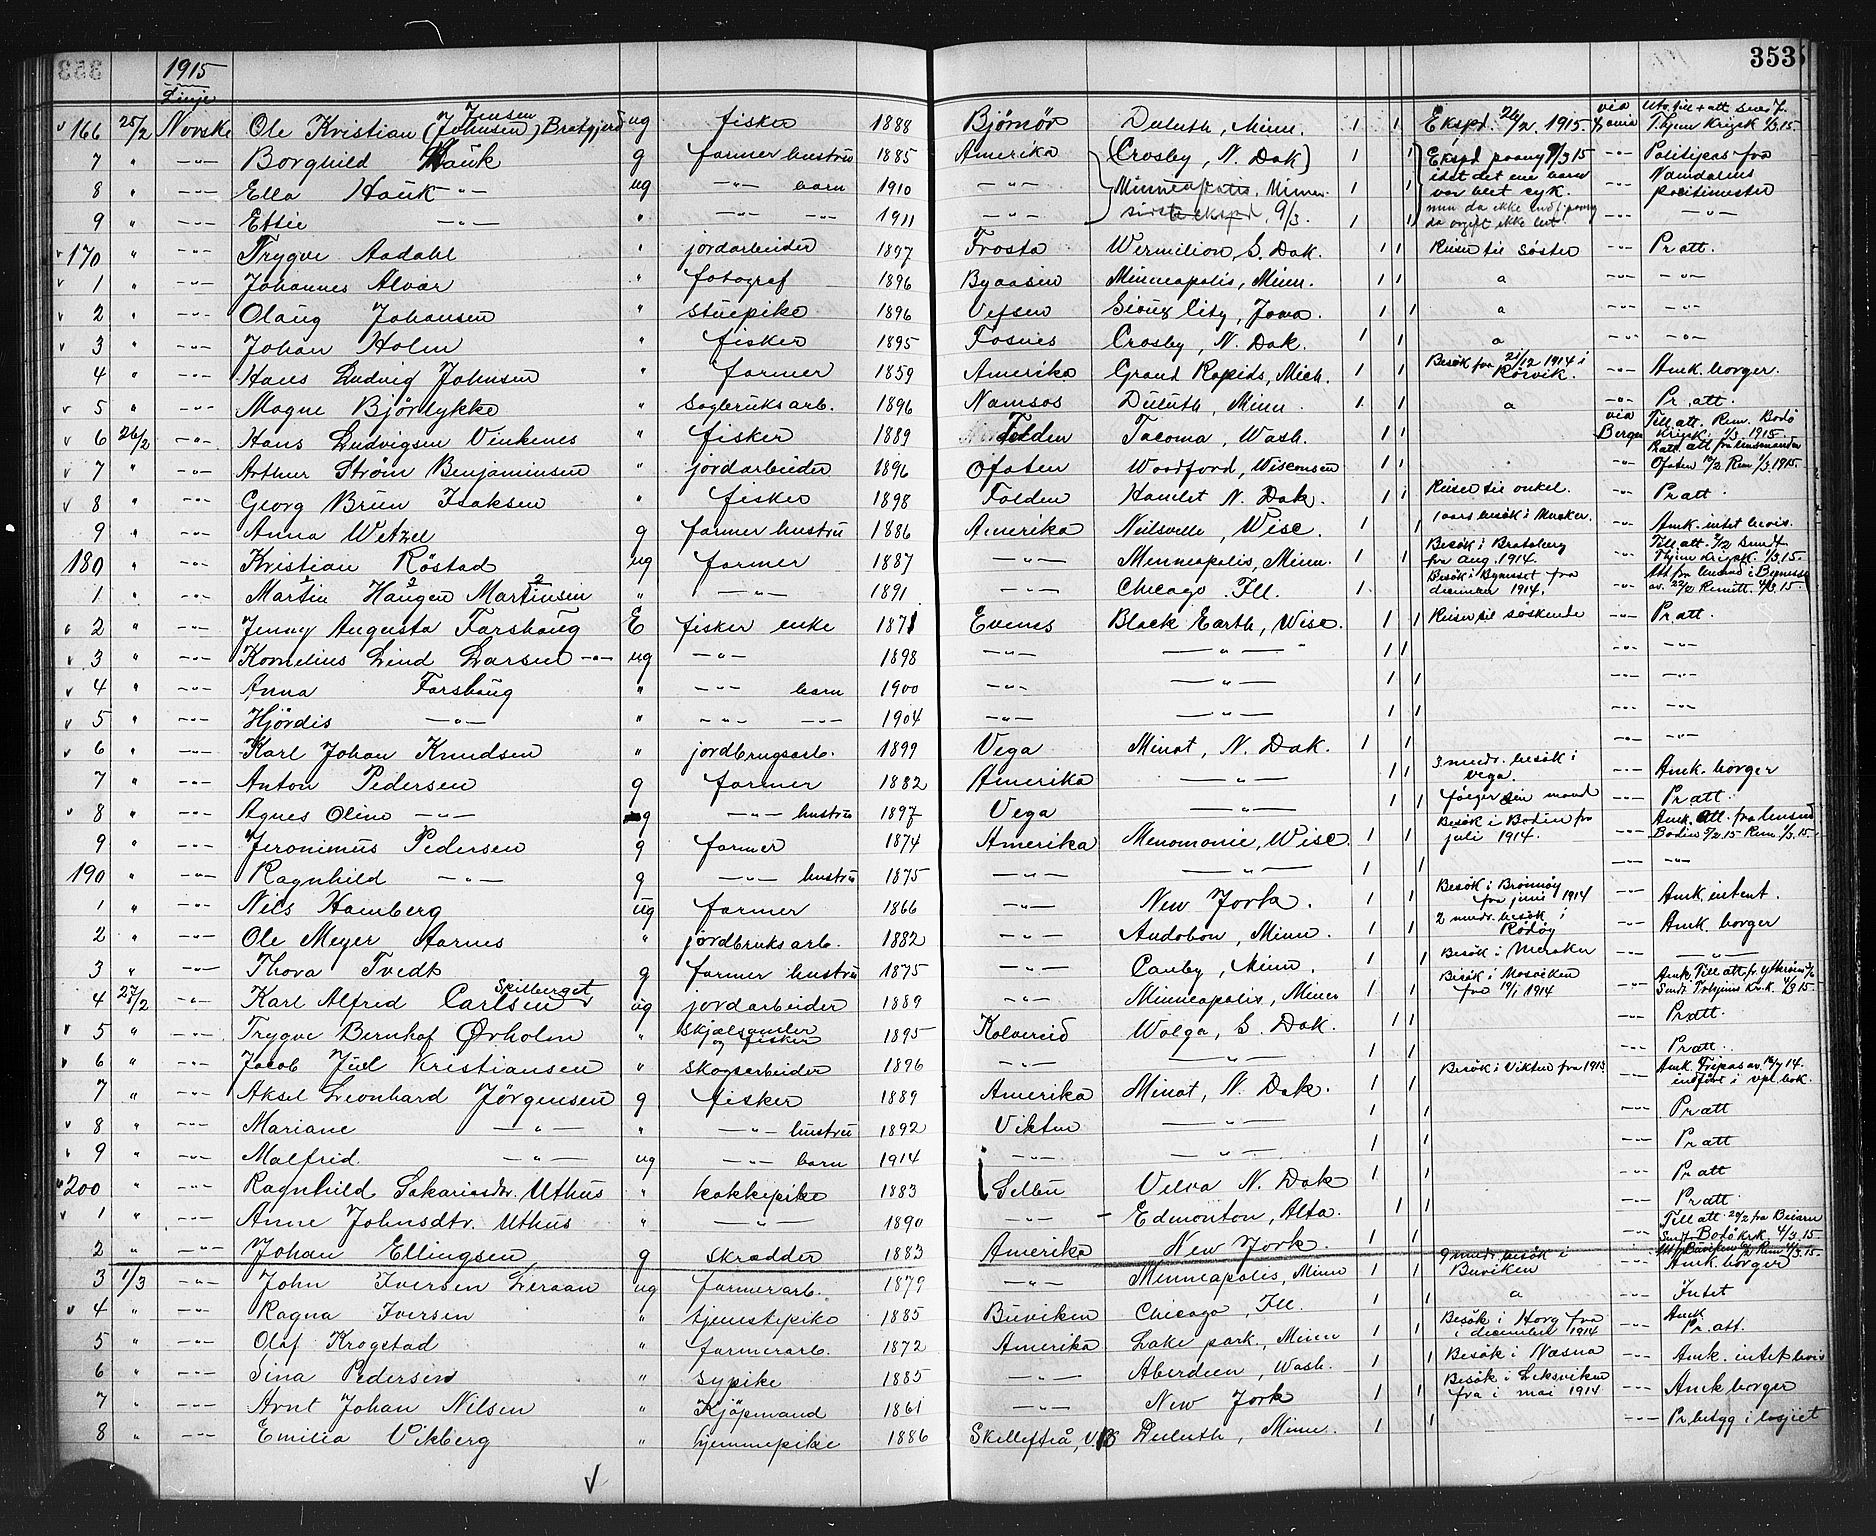 353
1915
Linje
166 25/2 Norske Ole Kristian (Johnsen) Jensen Bratgjerd ug fisker 1888 Bjørnör Duluth, Minn. 1 1 Ekspd. 26/2 1915 via
7 " -"- Borghild Hauk g farmer hustru 1885 Amerika (Crosby, N. Dak) 1 1 Ekspd paany 9/3 15 -"- Politipas fra
8 " -"- Ella Hauk -"- ug -"- barn 1910 -"- Minneapolis, Minn. 1 1 idet det ene barn var blet syk. -"- Namdalens politimester
9 " -"- Effie -"- " -"- -"- 1911 -"- sidste ekspd, 9/3. 1 1 -"- -"-
170 " -"- Trygve Aadahl " jordarbeider 1897 Frosta Wermilion, S. Dak. 1 1 Reiser til søster -"- Pr att.
1 " -"- Johannes Alvar " fotograf 1896 Byaasen Minneapolis, Minn. 1 1 a -"- -"-
2 " -"- Olaug Johansen " stuepike 1896 Vefsen Sioux City, Jowa. 1 1 a -"- -"-
3 " -"- Johan Holm " fisker 1895 Fosnes Crosby, N. Dak. 1 1 a -"- -"-
4 " -"- Hans Ludvig Johnsen " farmer 1859 Amerika Grand Rapids, Mich. 1 1 Besøk fra 21/12 1914 i Rörvik. -"- Amk. borger.
5 " -"- Magne Bjørlykke " sagbruksarb. 1896 Namsos Duluth, Minn. 1 1 a -"- Pr. att.
6 26/2 -"- Hans Ludvigsen Vinkenes " fisker 1889 Folden Tacoma, Wash. 1 1 via Bergen Till att. Rem. Bodö Krigsk. 1/3 1915.
7 " -"- Arthur Strøm Benjaminsen " jordarbeider 1896 Ofoten Woodford, Wisconsen 1 1 -"- Pr att. att fra lensmanden Ofoten 10/2 Rem 1/3 1915.
8 " -"- Georg Bruun Isaksen " fisker 1898 Folden Hamlet N. Dak. 1 1 Reiser til onkel. -"- Pr att.
9 " -"- Anna Wetzel g farmer hustru 1886 Amerika Neilsville, Wisc. 1 1 1 aars besök i Meraker. -"- Amk. intet bevis.
180 " -"- Kristian Röstad ug farmer 1887 -"- Minneapolis, Minn. 1 1 Besök i Bratsberg fra aug. 1914. -"- Till att. 2/2 Sendt Thjem Krigsk. 1/3 15.
1 " -"- Martin Haugen Martinsen " -"- 1891 -"- Chicago. Ill. 1 Besök i Bynesset fra december 1914. -"- Att fra lensmd i Bynesset av. 22/2 Remitt. 4/3 15.
2 " -"- Jenny Augusta Forshaug E fisker enke 1871 Evenes Black Earth, Wisc. 1 1 Reiser til söskende -"- Pr att.
3 " -"- Kornelius Lind Larsen -"- ug -"- 1898 -"- -"- 1 1 -"- -"-
4 " -"- Anna Forshaug " -"- barn 1900 -"- -"- 1 1 -"- -"-
5 " -"- Hjördis -"- " -"- -"- 1904 -"- -"- 1 1 -"- -"-
6 " -"- Karl Johan Knudsen " jordbrugsarb. 1899 Vega Minot, N. Dak. 1 1 -"- -"-
7 " -"- Anton Pedersen g farmer 1882 Amerika -"- 1 1 3 mndr. besök i Vega. -"- Amk. borger
8 " -"- Agnes Oline -"- g -"- hustru 1897 Vega -"- 1 1 følger sin mand -"- Pr att.
9 " -"- Jeronimus Pedersen g farmer 1874 Amerika Menomonie, Wisc. 1 1 Besök i Bodin fra juli 1914. -"- Amk. att. fra lensmd Bodin 5/2 15 Rem. 1/3 15.
190 " -"- Ragnhild -"- g -"- hustru 1875 -"- -"- 1 1 -"- -"-
1 " -"- Nils Hamberg ug farmer 1866 -"- New York. 1 1 Besök i Brönnöy fra juni 1914 -"- Amk. intent.
2 " -"- Ole Meyer Aarnes " jordbruksarb. 1882 -"- Audobon, Minn. 1 1 2 mndr. besök i Rödöy -"- Amk. borger
3 " -"- Thora Tvedt g farmer hustru 1875 -"- Canby, Minn. 1 1 Besök i Meraker -"- -"-
4 27/2 -"- Karl Alfred Carlsen Skilberget ug jordarbeider 1889 -"- Minneapolis, Minn 1 1 Besök i Mosviken fra 19/1 1914 -"- Amk. Till att. fr. Ytterøen Sendt Trhjems Kr.k. 4/3 15.
5 " -"- Trygve Bernhof Ørholm " skjælsamler og fisker 1895 Kolvereid Wolga, S. Dak. 1 1 -"- Pr att.
6 " -"- Jacob Juel Kristiansen " skogsarbeider 1896 -"- -"- 1 1 -"- Pr att.
7 " -"- Aksel Leonhard Jörgensen g fisker 1889 Amerika Minot, N. Dak. 1 1 Besök i Vikten fra 1913 -"- Amk. Fripas av. 16/7 14. indført i vpl. bok.
8 " -"- Mariane -"- " -"- hustru 1892 Vikten -"- 1 1 -"- Pr att
9 " -"- Malfrid. -"- ug -"- barn 1914 -"- -"- 1 1 -"- Pr att
200 " -"- Ragnhild Sakariasdtr. Uthus " kokkepike 1883 Selbu Velva N. Dak 1 1 -"- Pr att
1 " -"- Anne Johnsdtr. Uthus " -"- 1890 -"- Edmonton, Alta. 1 1 Pr att.
2 " -"- Johan Ellingsen g skrædder 1883 Amerika New York. 1 1 -"- Till att. 20/2 fra Beiarn Sendt Bodö Krk 4/3 15.
3 1/3 -"- John Iversen Leraan ug farmerarb. 1879 -"- Minneapolis, Minn 1 1 9 mndr. besök i Buviken -"- Amk. borger
4 " -"- Ragna Iversen " tjenestepike 1885 Buviken Chicago, Ill. 1 1 a -"- Intet
5 " -"- Olaf Krogstad " farmerarb. 1872 Amerika Lake park, Minn 1 1 Besök i Horg fra i december 1914 -"- Amk Pr. att.
6 " -"- Sina Pedersen " sypike 1885 -"- Aberdeen, Wash. 1 1 Besök i Næsna -"- Amk. intet bevis
7 " -"- Arnt Johan Nilsen " Kjöpmand 1861 -"- New York 1 1 Besök i Leksviken fra i mai 1914 -"- Amk borger
8 " -"- Emilia Vikberg " hjemmepike 1886 Skellefteå, V.B Duluth, Minn. 1 1 -"- Pr betyg i losjiet